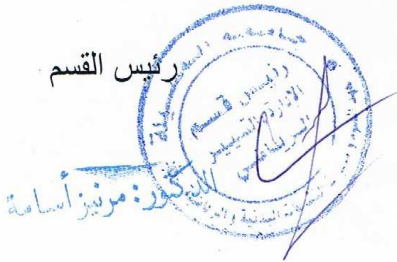 رئيس القسم
جامعة المسيلة
رئيس قسم
الإدارة و التسيير
الرياضي
الدكتور: مرنيز أسامة